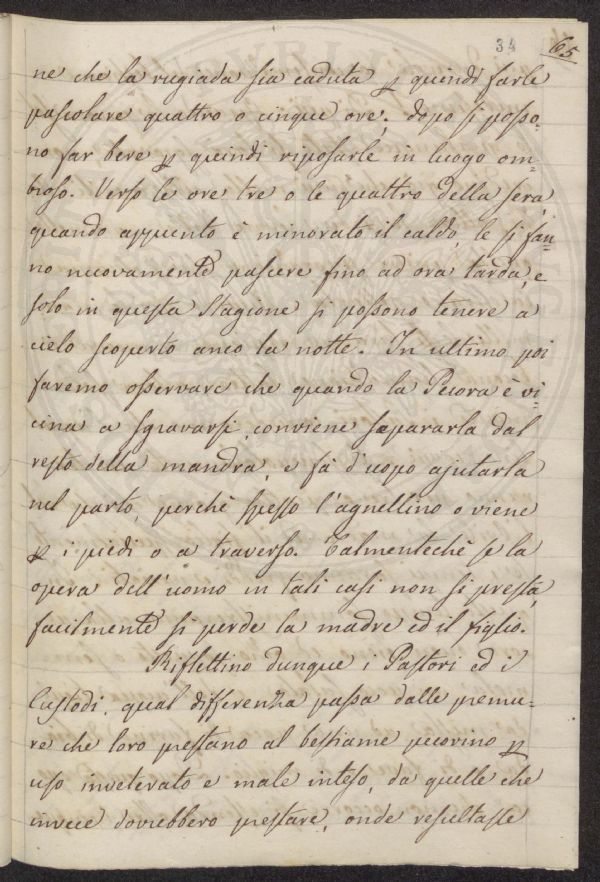 34 65
ne che la rugiada sia caduta p quindi farle
pascolare quattro o cinque ore; dopo si posso-
no far bere p quindi riposarle in luogo om-
broso. Verso le ore tre o le quattro della sera,
quando appunto è minorato il caldo, le si fan-
no nuovamente pascere fino ad ora tarda, e
solo in questa Stagione si possono tenere a
cielo scoperto anco la notte. In ultimo poi
faremo osservare che quando la Pecora è vi-
cina a sgravarsi conviene separarla dal
resto della mandra, e fà d'uopo ajutarla
nel parto, perchè spesso l'agnellino o viene
p i piedi o a traverso. Talmentechè se la
opera dell'uomo in tali casi non si presta,
facilmente si perde la madre ed il figlio.
Riflettino dunque i Pastori ed i
Custodi, qual differenza passa dalle premu-
re che loro prestano al bestiame pecorino p
uso inveterato e male inteso, da quelle che
invece dovrebbero prestare, onde resultasse